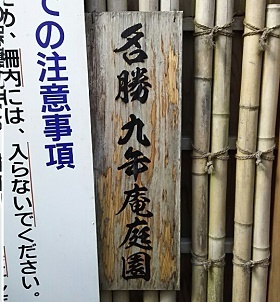 ての注意事項
め、柵内には、入らないでください。
名勝九年庵庭園